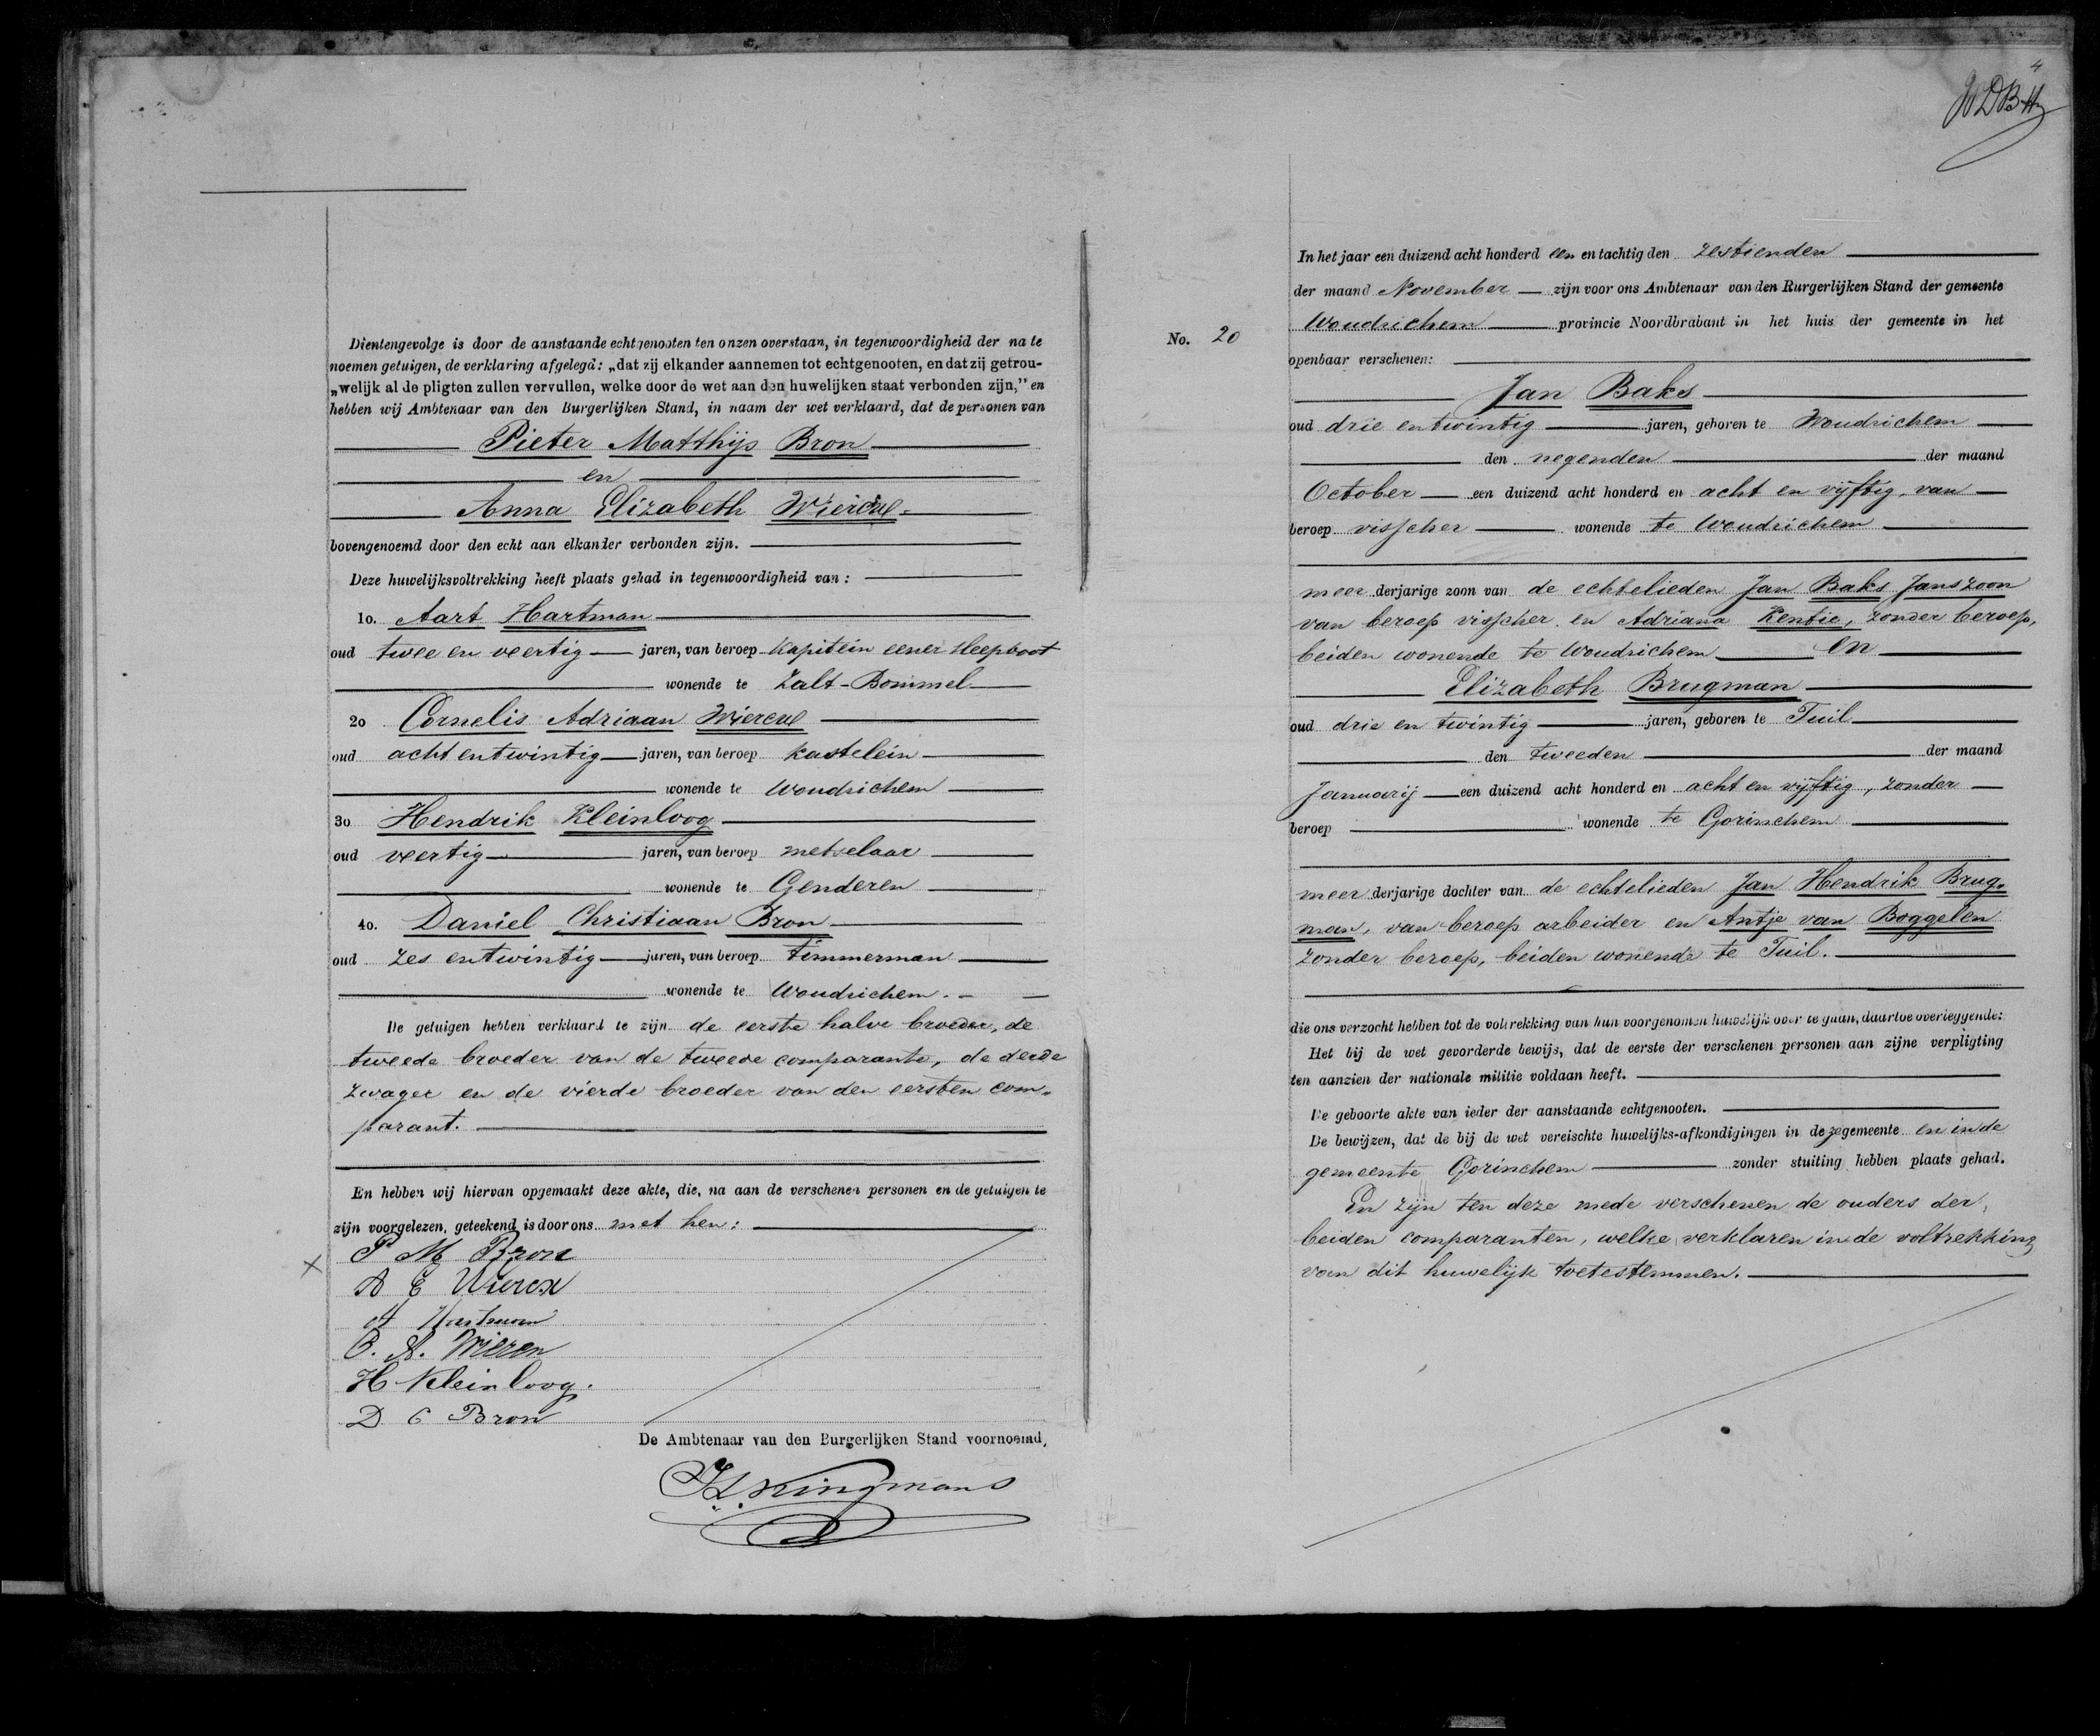 Dientengevolge is door de aanstaande echtgenooten ten onzen overstaan, in tegenwoordigheid der na te
noemen getuigen, de verklaring afgelegd: „dat zij elkander aannemen tot echtgenooten, en dat zij getrou-
„welijk al de pligten zullen vervullen, welke door de wet aan den huwelijken staat verbonden zijn,” en
hebben wij Ambtenaar van den Burgerlijken Stand, in naam der wet verklaard, dat de personen van
Pieter Matthijs Bron
en
Anna Elizabeth
bovengenoemd door den echt aan elkander verbonden zijn.
Deze huwelijksvoltrekking heeft plaats gehad in tegenwoordigheid van:
1o. Aart Hartman
oud twee en veertig jaren, van beroep Kapitein eener sleepboot
wonende te Zalt-Bommel
2o Cornelis Adriaan
oud acht en twintig jaren, van beroep kastelein
wonende te Woudrichem
3o Hendrik Kleinloog
oud veertig jaren, van beroep metselaar
wonende te Genderen
4o. Daniel Christiaan Bron
oud zes en twintig jaren, van beroep timmerman
wonende te Woudrichem.
De getuigen hebben verklaard te zijn de eerste halve broeder, de
tweede broeder van de tweede comparante, de derde
zwager en de vierde broeder van den eersten com-
parant.
En hebben wij hiervan opgemaakt deze akte, die, na aan de verschenen personen en de getuigen te
zijn voorgelezen, geteekend is door ons met hen:
P M Bron
A E Wierex
A Hartman
C. A. Wierex
H Kleinloog.
D C Bron
De Ambtenaar van den Burgerlijken Stand voornoemd,
Kingmans
4
No. 20
In het jaar een duizend acht honderd een en tachtig den zestienden
der maand November zijn voor ons Ambtenaar van den Burgerlijken Stand der gemeente
Woudrichem provincie Noordbrabant in het huis der gemeente in het
openbaar verschenen:
Jan Baks
oud drie en twintig jaren, geboren te Woudrichem
den negenden der maand
October een duizend acht honderd en acht en vijftig, van
beroep visscher wonende te Woudrichem
meer derjarige zoon van de echtelieden Jan Baks Janszoon
van beroep visscher en Adriana Kentie, zonder beroep,
beiden wonende te Woudrichem en
Elizabeth Brugman
oud drie en twintig jaren, geboren te Tuil
den tweeden der maand
Januarij een duizend acht honderd en acht en vijftig, zonder
beroep wonende te Gorinchem
meer derjarige dochter van de echtelieden Jan Hendrik Brug-
man, van beroep arbeider en Antje van Boggelen
zonder beroep, beiden wonende te Tuil.
die ons verzocht hebben tot de voltrekking van hun voorgenomen huwelijk over te gaan, daartoe overleggende:
Het bij de wet gevorderde bewijs, dat de eerste der verschenen personen aan zijne verpligting
ten aanzien der nationale militie voldaan heeft.
De geboorte akte van ieder der aanstaande echtgenooten.
De bewijzen, dat de bij de wet vereischte huwelijks-afkondigingen in deze gemeente en in de
gemeente Gorinchem zonder stuiting hebben plaats gehad.
En zijn ten deze mede verschenen de ouders der
beiden comparanten, welke verklaren in de voltrekking
van dit huwelijk toetestemmen.